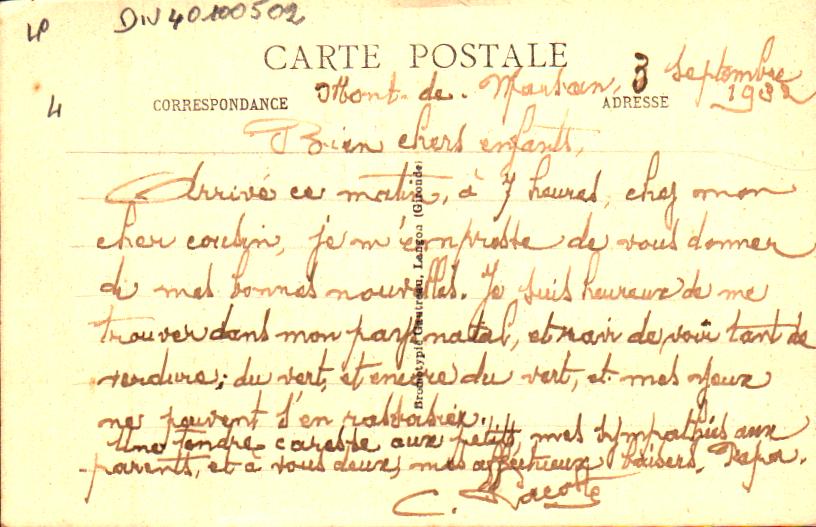 LP
DIV 40100502
CARTE POSTALE
4
CORRESPONDANCE
ADRESSE
Mont-de-Marsan, 3 Septembre
1932
Bien chers enfants,
Arrivé ce matin, à 7 heures, chez mon
cher cousin, je m'empresse de vous donner
de mes bonnes nouvelles. Je suis heureux de me
trouver dans mon pays natal, et ravi de voir tant de
verdure; du vert, et encore du vert, et mes yeux
ne peuvent s'en rassasier.
Une tendre caresse aux petits, mes sympathies aux
parents, et à vous deux, mes affectueux baisers. Papa.
C. Lacoste
Bromotypie Gautreau, Langon (Gironde)